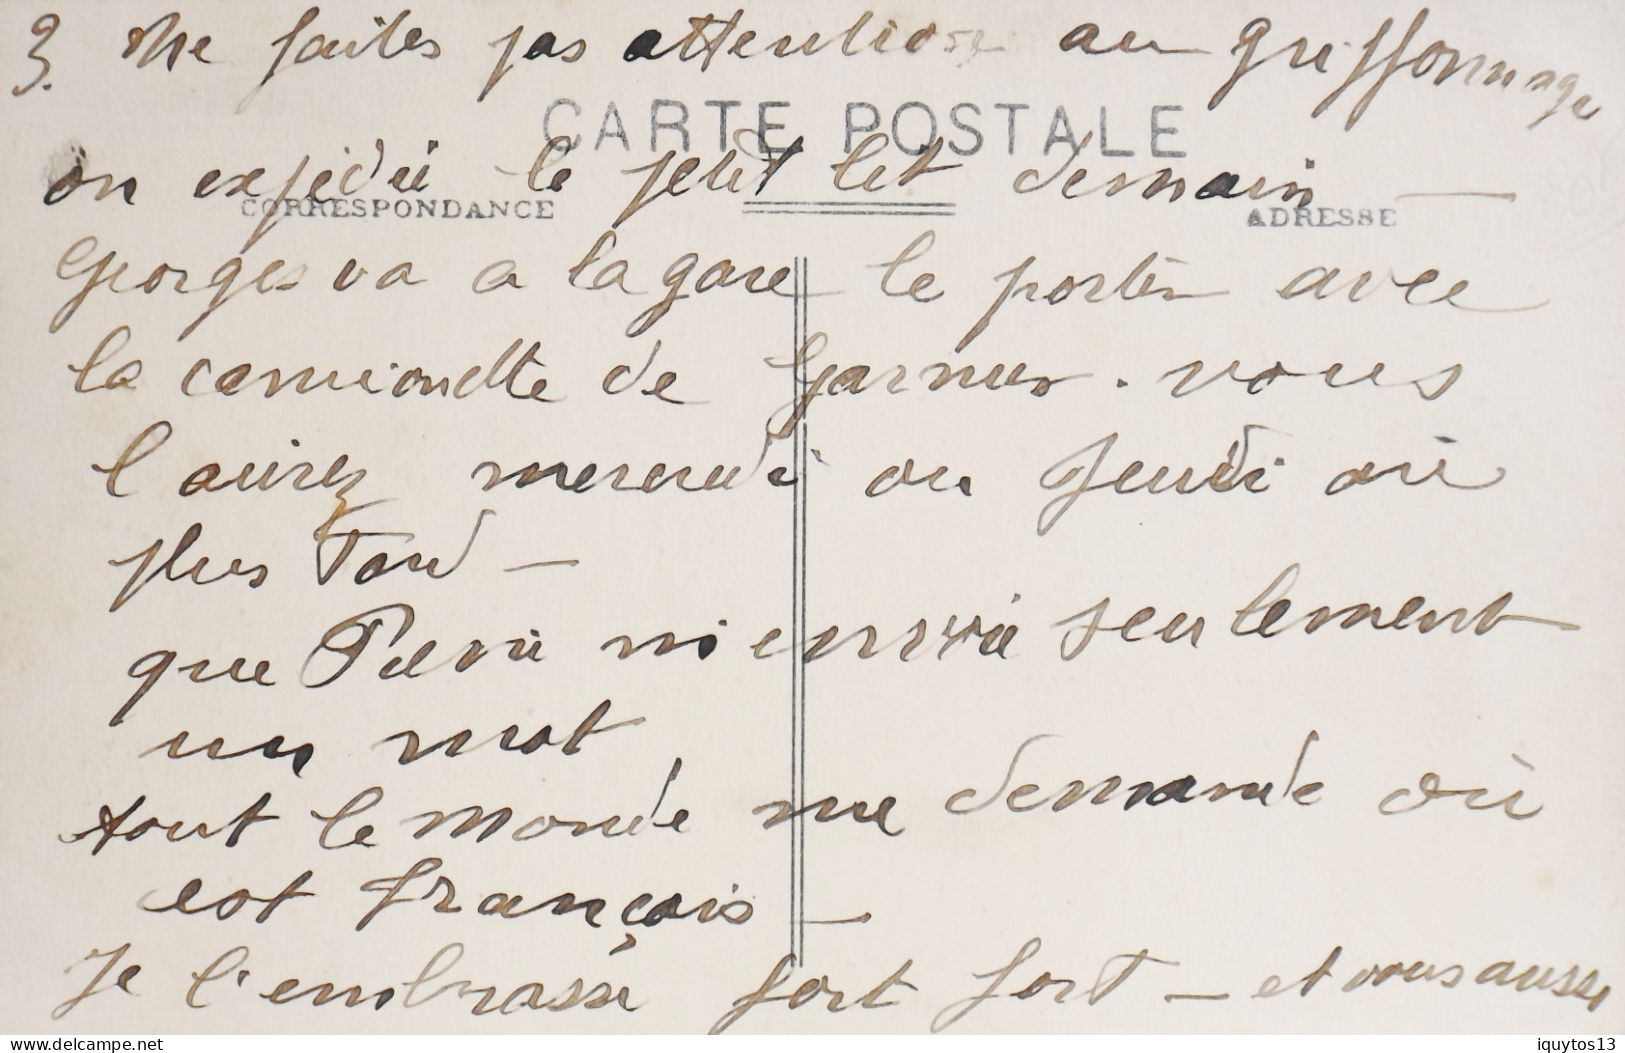 3. Ne faites pas attention au griffonnage
CARTE POSTALE
on expédie le petit lit demain —
CORRESPONDANCE
ADRESSE
Georges va a la gare le porter avec
la camionette de Garnier. vous
l'aurez mercredi ou Jeudi ou
plus Tard —
que m'envoie seulement
un mot
tout le monde me demande où
est françois —
Je l'embrasse fort fort — et vous aussi
www.delcampe.net
iquytos13